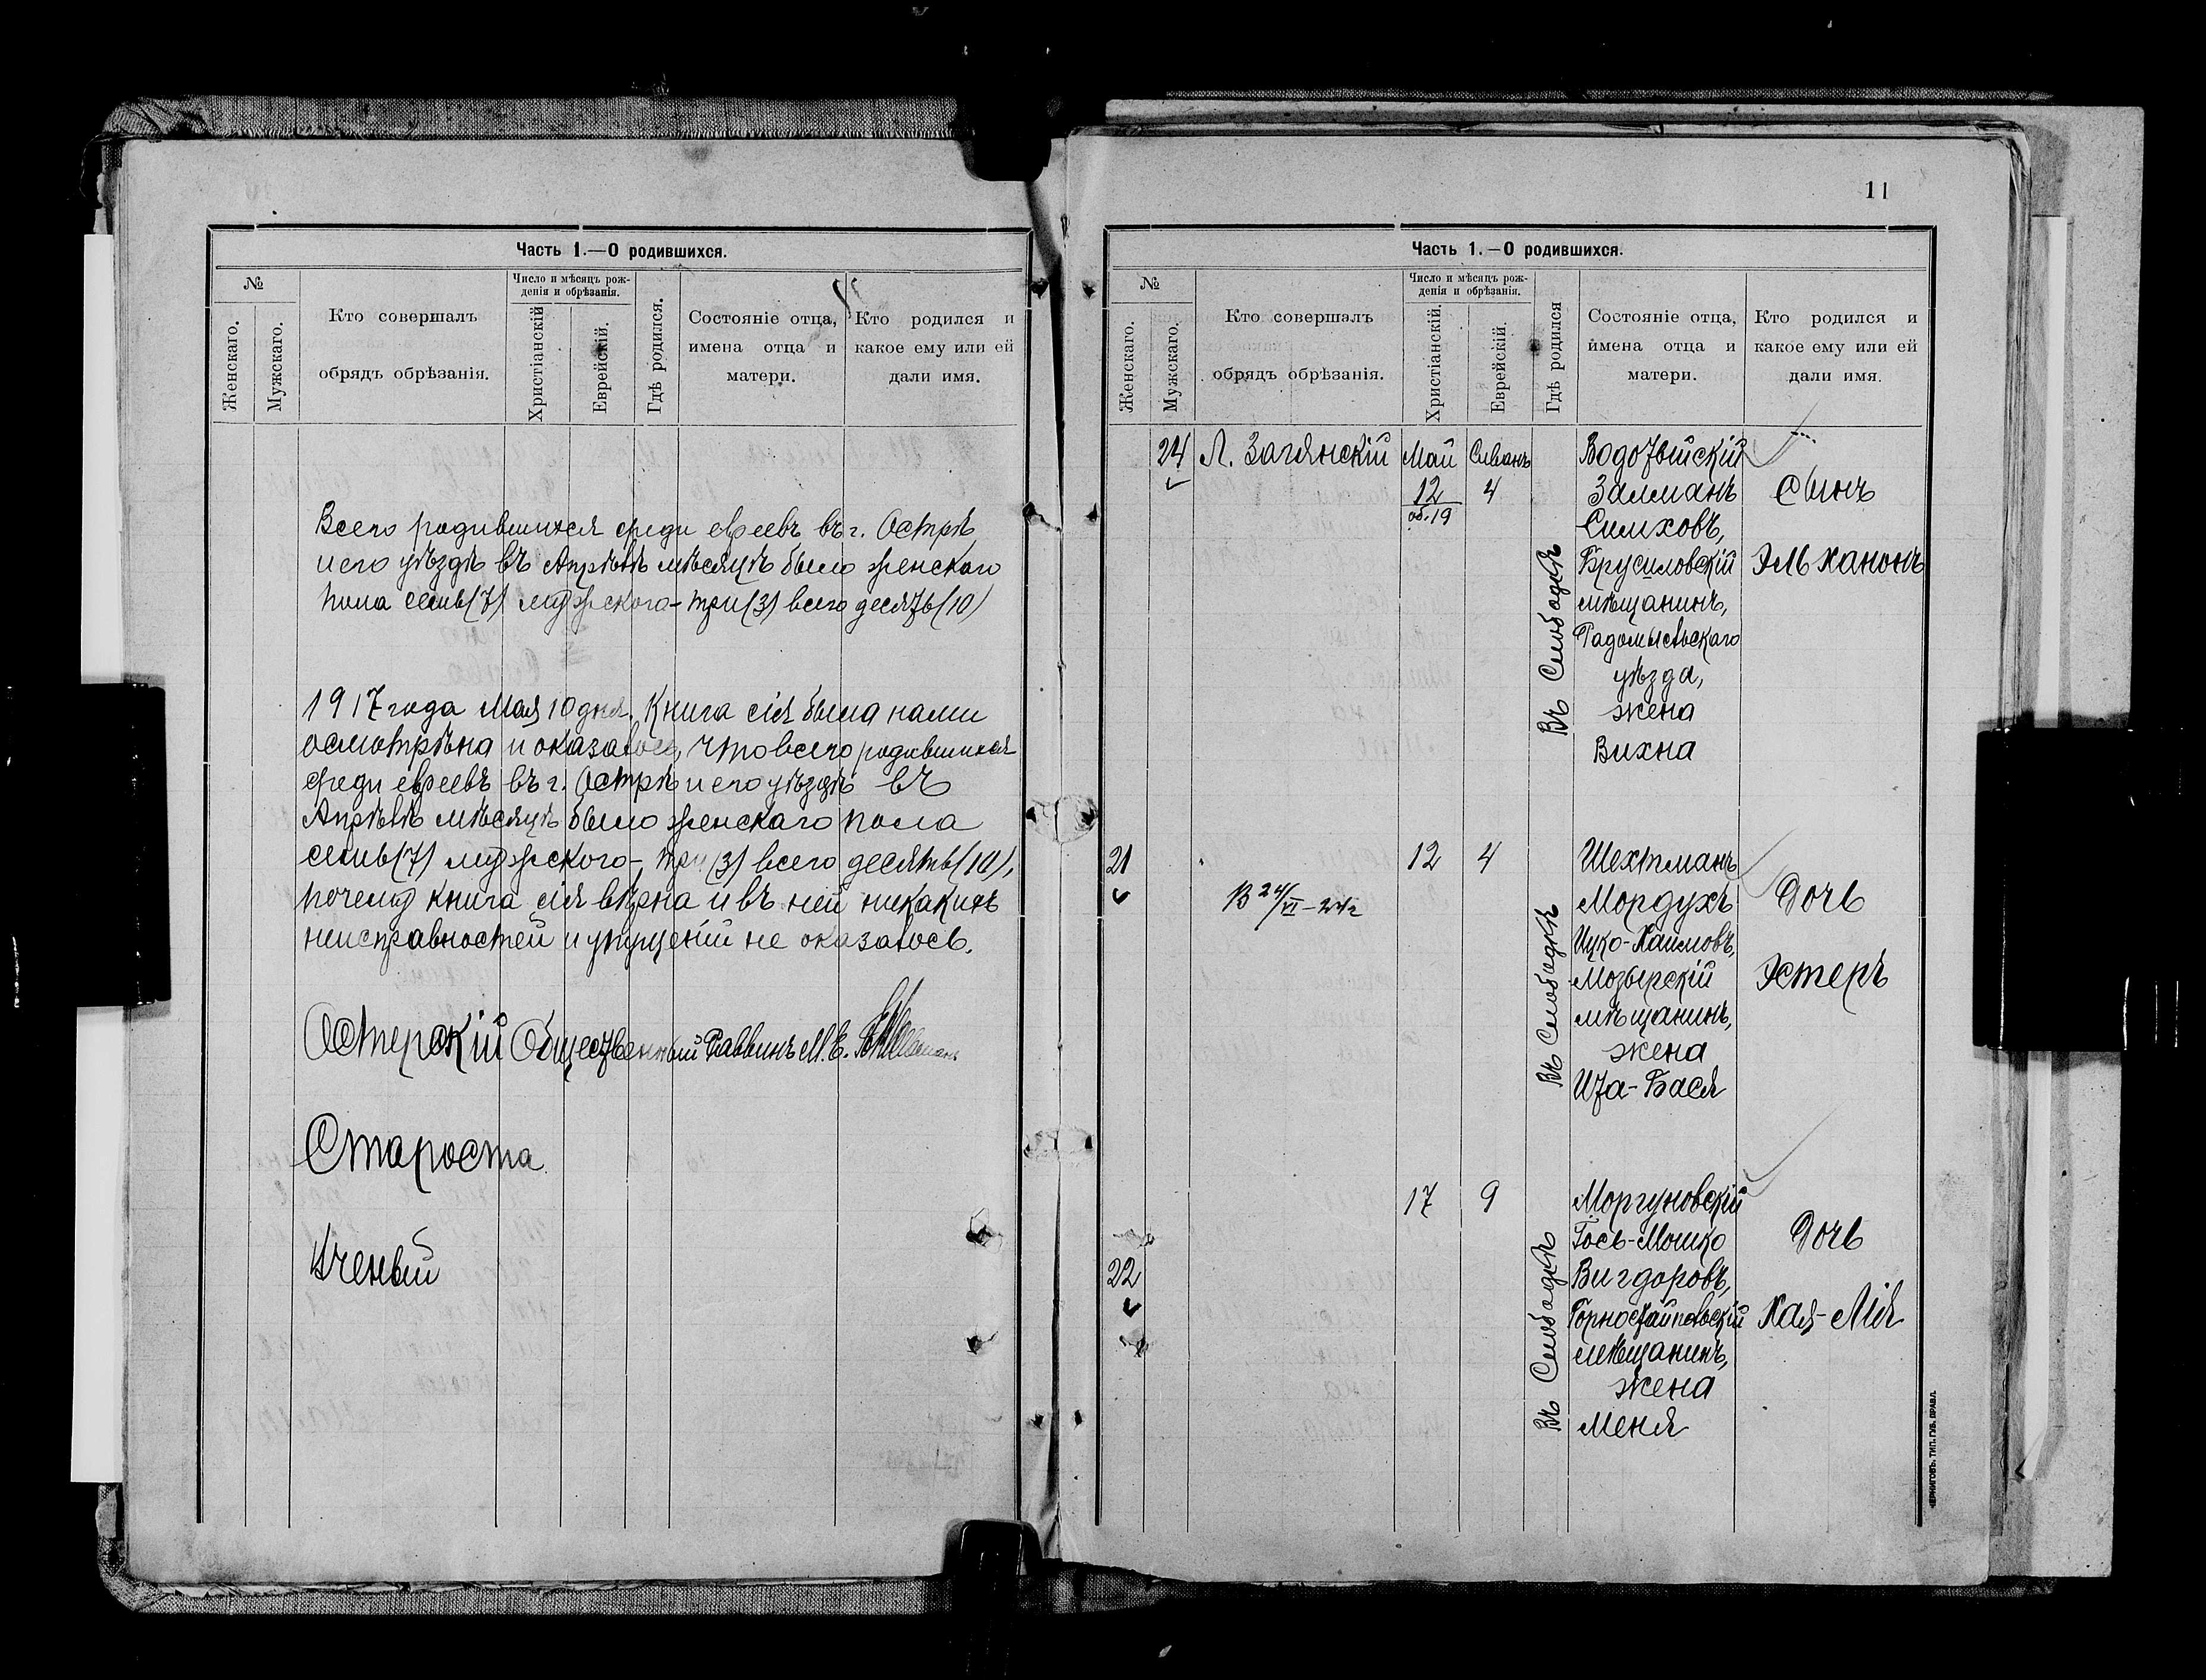 Часть 1.—О родившихся.
№
Женскаго.
Мужскаго.
Кто совершалъ
обрядъ обрѣзанія.
Число и мѣсяцъ рож-
денія и обрѣзанія.
Христіанскій
Еврейскій.
Гдѣ родился.
Состояніе отца,
имена отца и
матери.
Кто родился и
какое ему или ей
дали имя.
Всего родившихся среди евреевъ въ г. Острѣ
и его уѣздѣ въ Апрѣлѣ мѣсяцѣ было женскаго
пола семь (7) мужского - три (3) всего десять (10)
1917 года Мая 10 дня. Книга сія была нами
осмотрѣна и оказалось, что всего родившихся
среди евреевъ въ г. Острѣ и его уѣздѣ въ
Апрѣлѣ мѣсяцѣ было женскаго пола
семь (7) мужского -, три (3) всего десять (10),
почему книга сія вѣрна и въ ней никакихъ
неисправностей и упущеній не оказалось.
Остерскій Общественный Раввинъ М. Е.
Староста
Ученый
11
Часть 1.—О родившихся.
№
Женскаго.
Мужскаго.
Кто совершалъ
обрядъ обрѣзанія.
Число и мѣсяцъ рож-
денія и обрѣзанія.
Христіанскій.
Еврейскій.
Гдѣ родился
Состояніе отца,
имена отца и
матери.
Кто родился и
какое ему или ей
дали имя.
24 Л. Заглянскій Май Сиванъ
12 4
об. 19
Въ Слободѣ
Водотыйскій
Залманъ
Симховъ,
Брусиловскій
мѣщанинъ,
Радомысльскаго
уѣзда,
жена
Вихна
Сынъ
Эльханонъ
21 12 4
В 24/VI - 24 г
Въ Слободѣ
Шехтманъ
Мордухъ
Ицко-Хаимовъ,
Мозырскій
мѣщанинъ,
жена
Ита-Бася
Дочь
Эстеръ
22 17 9
Въ Слободѣ
Моргуновскій
Гось-Мошко
Вигдоровъ,
Горностайпольскій
мѣщанинъ,
жена
Меня
Дочь
Хая-Лія
ЧЕРНИГОВЪ. ТИП. ГУБ. ПРАВЛ.